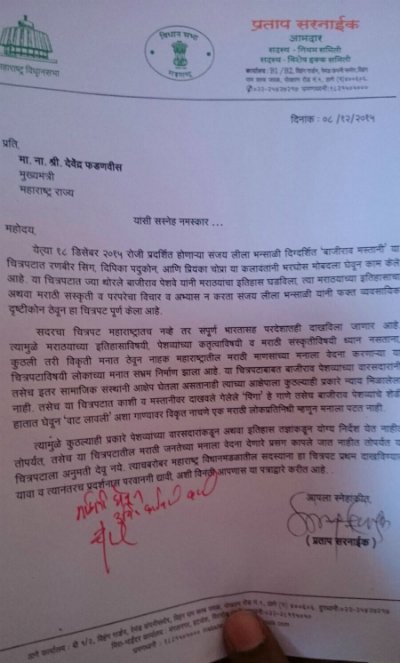 प्रताप सरनाईक
आमदार
सदस्य - नियम समिती
सदस्य - विशेष हक्क समिती
विधान सभा
महाराष्ट्र
महाराष्ट्र विधानसभा
दिनांक : ०८ /१२/२०१५
प्रति,
मा. ना. श्री. देवेंद्र फडणवीस
मुख्यमंत्री
महाराष्ट्र राज्य
यांसी सस्नेह नमस्कार ...
महोदय,
येत्या १८ डिसेंबर २०१५ रोजी प्रदर्शित होणाऱ्या संजय लीला भन्साळी दिग्दर्शित 'बाजीराव मस्तानी' या
चित्रपटात रणबीर सिंग, दिपिका पदुकोन, आणि प्रियंका चोप्रा या कलावतांनी भरघोस मोबदला घेवून काम केले
आहे. या चित्रपटात ज्या थोरले बाजीराव पेशवे यांनी मराठयाचा इतिहास घडविला, त्या मराठयांच्या इतिहासाचा
अथवा मराठी संस्कृती व परंपरेचा विचार व अभ्यास न करता संजय लीला भन्साळी यांनी फक्त व्यवसायिक
दृष्टीकोन ठेवून हा चित्रपट पूर्ण केला आहे.
सदरचा चित्रपट महाराष्ट्रातच नव्हे तर संपूर्ण भारतासह परदेशातही दाखविला जाणार आहे.
त्यामुळे मराठयांच्या इतिहासाविषयी, पेशव्यांच्या कतृत्वाविषयी व मराठी संस्कृतीविषयी ध्यान नसताना,
कुठली तरी विकृती मनात ठेवून नाहक महाराष्ट्रातील मराठी माणसाच्या मनाला वेदना करणाऱ्या या
चित्रपटाविषयी लोकाच्या मनात संभ्रम निर्माण झाला आहे. या चित्रपटाबाबत बाजीराव पेशव्यांच्या वारसदारांनी
तसेच इतर सामाजिक संस्थानी आक्षेप घेतला असतानाही त्यांच्या आक्षेपाला कुठल्याही प्रकारे न्याय मिळालेला
नाही. तसेच या चित्रपटात काशी व मस्तानीवर दाखवले गेलेले 'पिंगा' हे गाणे तसेच बाजीराव पेशव्यांचे शेंडी
हातात घेवून 'वाट लावली' अशा गाण्यावर विकृत नाचणे एक मराठी लोकप्रतिनिधी म्हणून मनाला पटत नाही.
त्यामुळे कुठल्याही प्रकारे पेशव्यांच्या वारसदारांकडून अथवा इतिहास तज्ञाकडून योग्य निर्देश येत नाही
तोपर्यंत, तसेच या चित्रपटातील मराठी जनतेच्या मनाला वेदना देणारे प्रसंग कापले जात नाहीत तोपर्यंत या
चित्रपटाला अनुमती देवू नये. त्याचबरोबर महाराष्ट्र विधानमंडळातील सदस्यांना हा चित्रपट प्रथम दाखविण्यात
यावा व त्यानंतरच प्रदर्शनास परवानगी द्यावी, अशी विनंती आपणास या पत्राद्वारे करीत आहे.
आपला स्नेहांकीत,
( प्रताप सरनाईक )